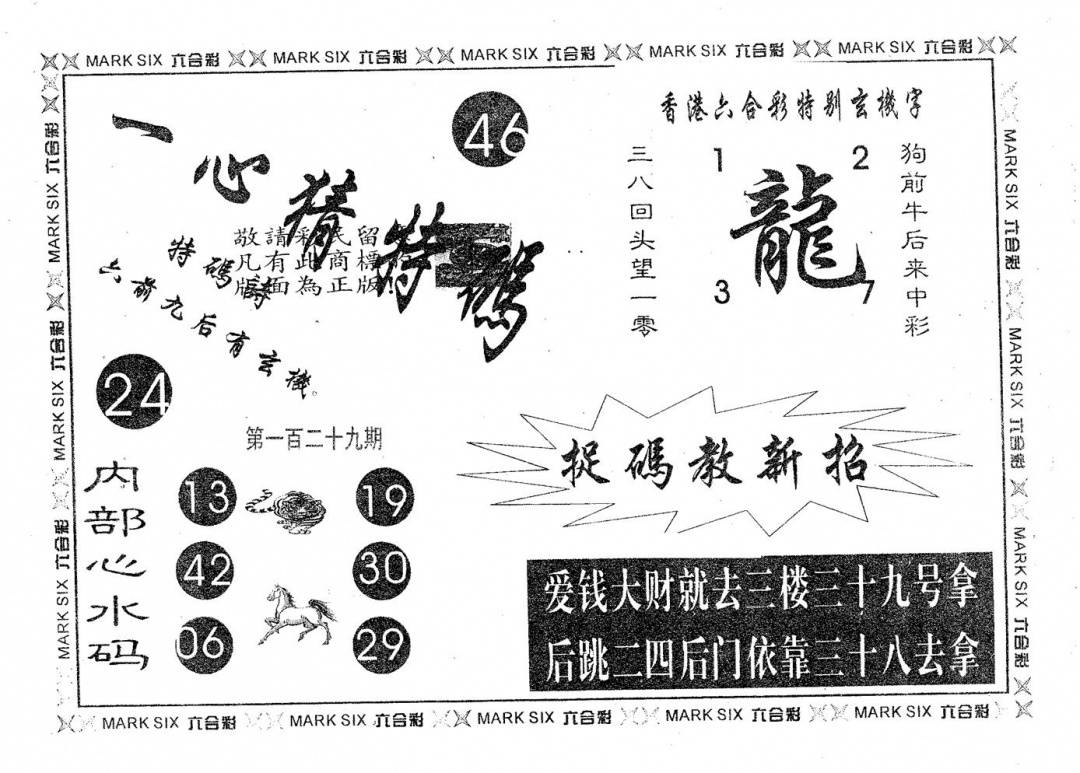 MARK SIX 六合彩 MARK SIX 六合彩 MARK SIX 六合彩 MARK SIX 六合彩 MARK SIX 六合彩
一心猜特碼
46
敬請彩民留
凡有此商標
版面為正版!
特碼詩
六前九后有玄機。
24
第一百二十九期
内部心水码
13 19
42 30
06 29
香港六合彩特别玄機字
三八回头望一零
1 2
龍
3 7
狗前牛后来中彩
捉碼教新招
爱钱大财就去三楼三十九号拿
后跳二四后门依靠三十八去拿
MARK SIX 六合彩 MARK SIX 六合彩 MARK SIX 六合彩
MARK SIX 六合彩 MARK SIX 六合彩 MARK SIX 六合彩
MARK SIX 六合彩 MARK SIX 六合彩 MARK SIX 六合彩 MARK SIX 六合彩 MARK SIX 六合彩